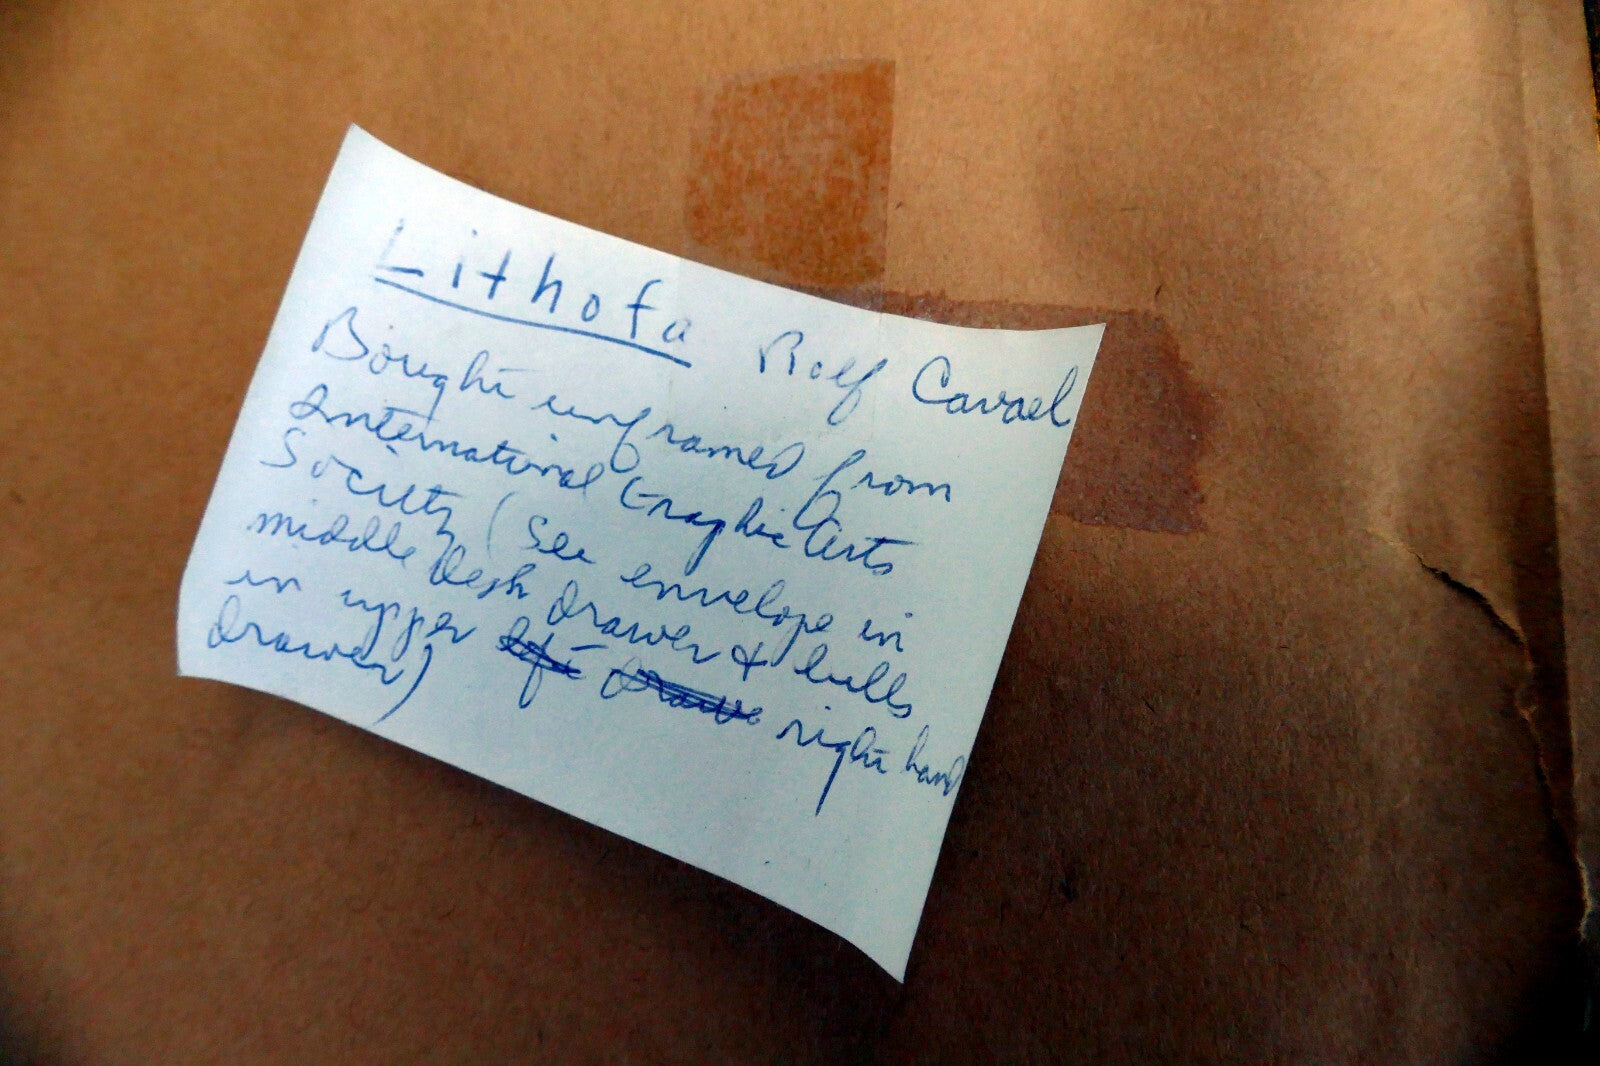 Lithofa Rolf Cavael
Bought unframed from
International Graphic Arts
Society (See envelope in
middle desk drawer & bills
in upper right hand
drawer)